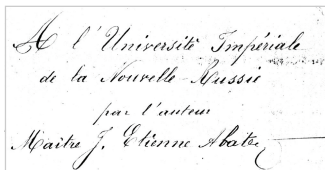 A l'Université Impériale
de la Nouvelle-Russie
par l'auteur
Maitre J. Etienne Abate